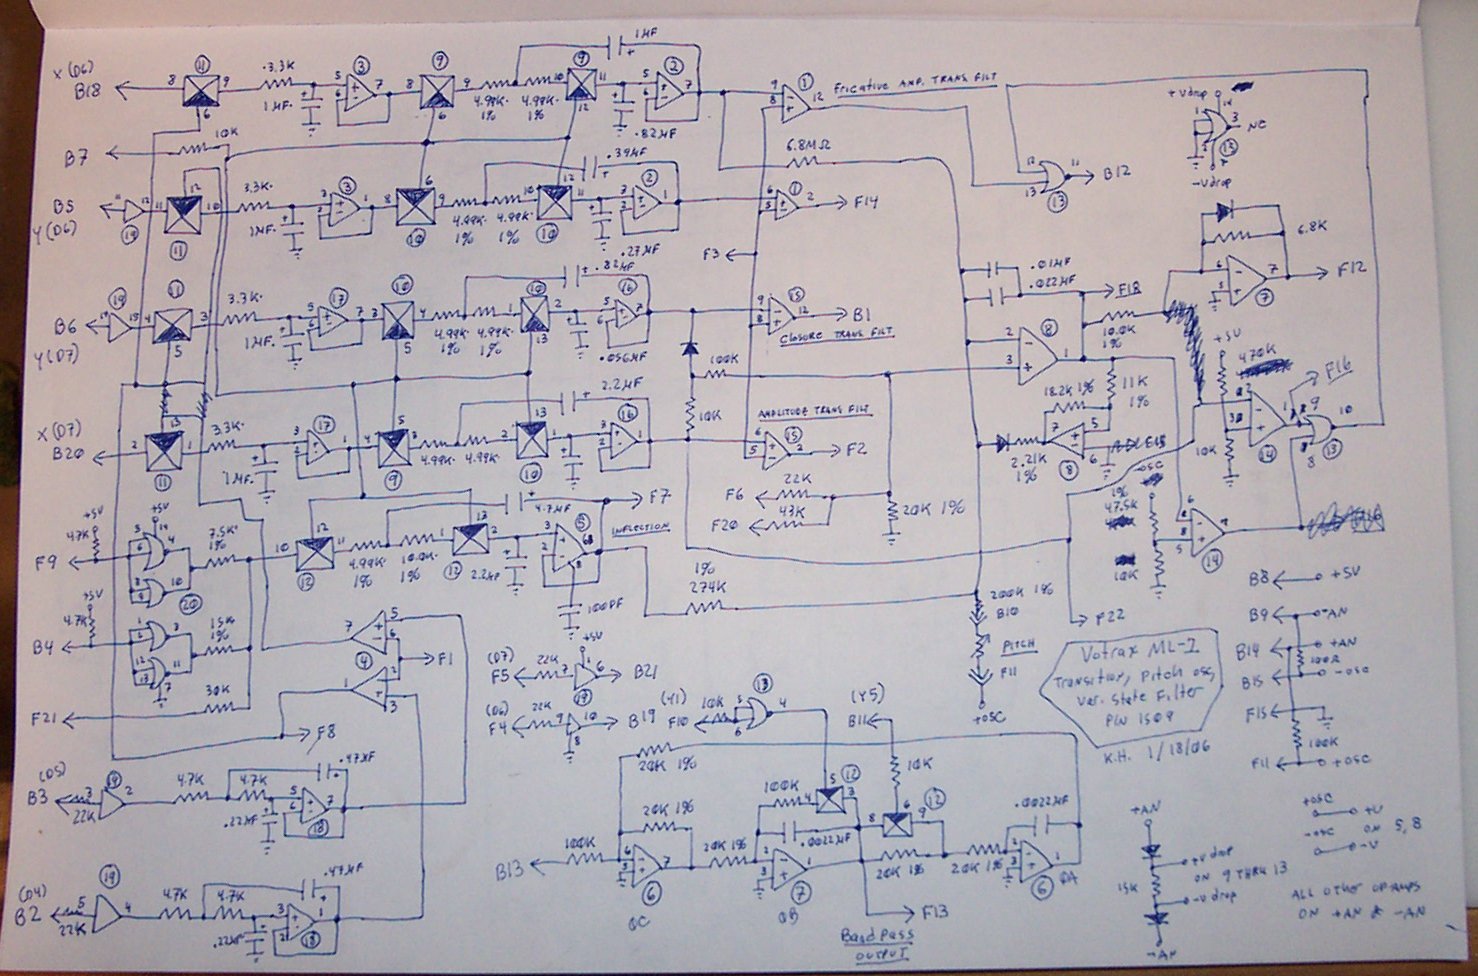 X (D6)
B18
8
11
9
6
.3.3K
1MF.
5
6
3
7
8
9
9
6
4.99K.
1%
10
4.99K.
1%
9
11
12
1MF
5
6
2
7
.82MF
9
8
1
12
Fricative Amp. Trans Filt
+Vdrop
14
1
2
3
NC
13
7
-Vdrop
B7
10K
B5
11
12
19
11
12
10
11
Y(D6)
3.3K.
1MF.
3
2
3
1
8
6
9
10
4.99K.
1%
4.99K.
1%
10
12
11
10
.39MF
3
2
2
1
.27MF
6.8MΩ
6
5
1
2
F14
12
13
11
B12
13
F3
6.8K
6
5
7
7
F12
B6
19
15
4
11
3
5
Y(D7)
3.3K.
1MF.
5
6
17
7
3
10
4
5
4.99K.
1%
4.99K.
1%
1
10
2
13
.82MF
5
6
16
7
.056MF
9
8
15
12
B1
Closure Trans. Filt.
.01MF
.022MF
F18
10.0K
1%
2
3
8
1
+5V
470K
F16
100K
10K
18.2K 1%
11K
1%
7
5
6
8
2.21K
1%
10K
14
9
8
13
10
X (D7)
B20
2
13
1
11
3.3K.
1MF.
3
2
17
1
4
5
3
9
4.99K.
4.99K.
1
13
2
10
2.2MF
3
2
16
1
Amplitude Trans Filt
6
5
15
2
F2
F6
22K
F20
43K
20K 1%
-osc
1%
47.5K
10K
6
5
14
+5V
4.7K
F9
+5V
14
4
10
20
7.5K.
1%
10
12
11
12
4.99K
1%
10.0K.
1%
1
13
2
12
4.7MF
2.2MF
3
2
5
8
100PF
F7
Inflection
1%
274K
200K 1%
B10
Pitch
F11
+osc
F22
+5V
4.7K
B4
1
2
3
11
13
7
15K
1%
F21
30K
7
5
6
4
1
2
3
F1
F8
(D7)
F5
22K
7
+5V
1
6
19
B21
(D6)
F4
22K
9
10
8
B19
(Y1)
F10
10K
5
6
13
4
(Y5)
B11
Votrax ML-I
Transition, Pitch osc,
Var. State Filter
P/N 1509
K.H. 1/18/06
B8
+5V
B9
-AN
B14
+AN
100Ω
B15
-osc
F15
100K
F11
+osc
(D5)
B3
3
22K
19
2
4.7K
4.7K
.47MF
.22MF
5
6
7
18
(D4)
B2
5
22K
19
4
4.7K
4.7K
.47MF
.22MF
3
2
1
18
20K 1%
20K 1%
B13
100K
6
5
7
6
QC
20K 1%
100K
4
5
3
12
.0022MF
2
3
1
7
QB
10K
8
6
9
12
20K 1%
20K 1%
.0022MF
2
3
1
6
QA
F13
Band Pass
Output
+AN
+Vdrop
ON 9 THRU 13
15K
-Vdrop
-AN
+osc
+V
-osc
ON
5, 8
-V
ALL OTHER OP-AMPS
ON +AN & -AN